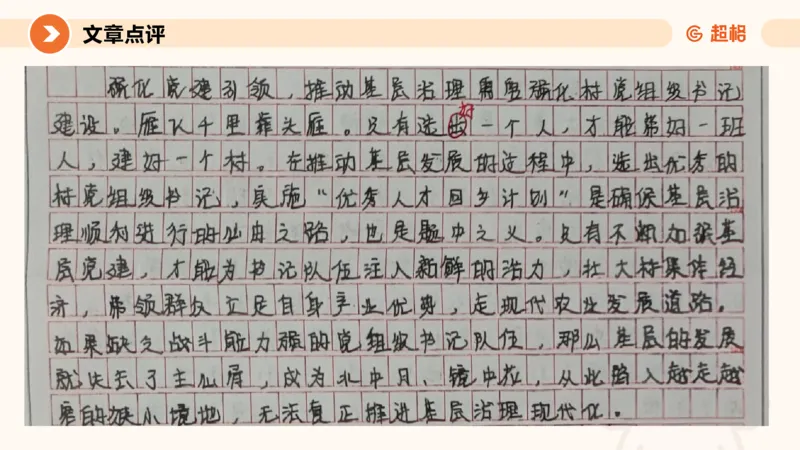 文章点评
超格
强化党建引领，推动基层治理需要强化村党组织书记
建设。雁飞千里靠头雁。只有选出一个人，才能带好一班
好
人，建好一个村。在推动基层发展的过程中，选出优秀的
村党组织书记，实施“优秀人才回乡计划”是确保基层治
理顺利进行的必由之路，也是题中之义。只有不断加强基
层党建，才能为书记队伍注入新鲜的活力，壮大村集体经
济，带领群众立足自身产业优势，走现代农业发展道路。
如果缺乏战斗能力强的党组织书记队伍，那么基层的发展
就失去了主心骨，成为水中月、镜中花，从此陷入越走越
窄的狭小境地，无法真正推进基层治理现代化。